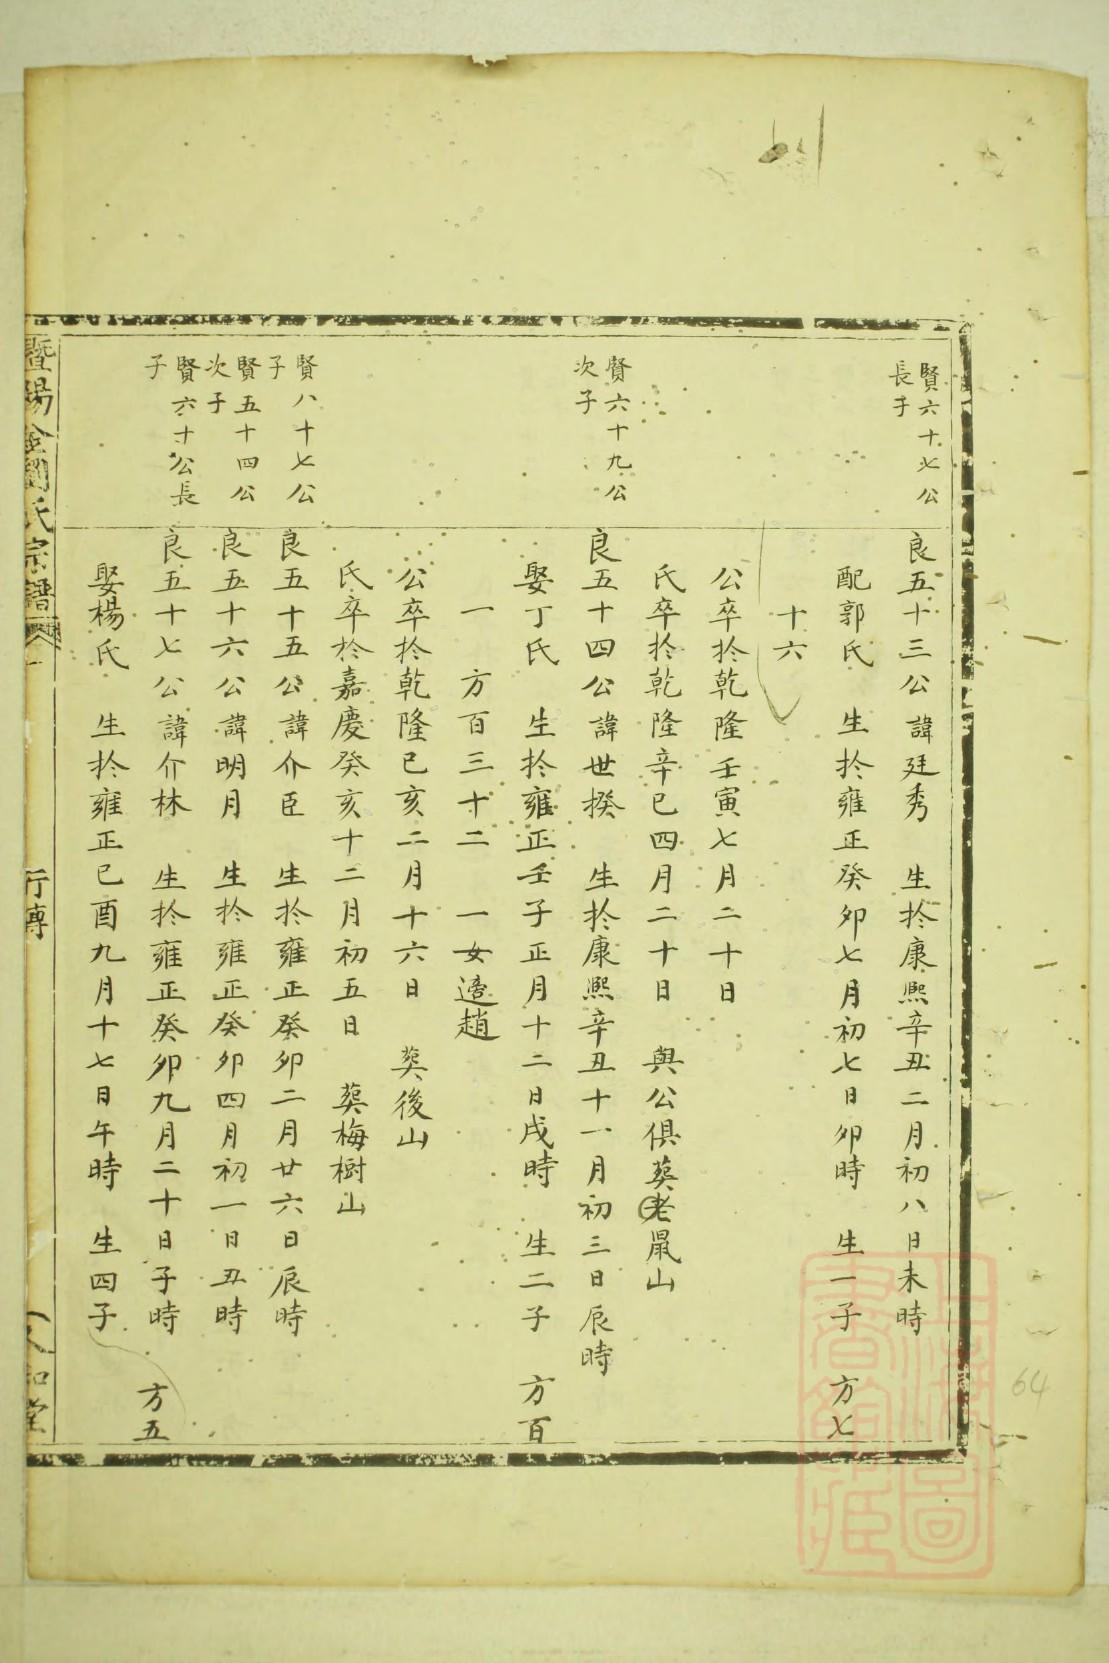 賢六十七公
長子
良五十三公諱廷秀　生於康熙辛丑二月初八日未時
配郭氏　生於雍正癸卯七月初七日卯時　生一子　方七
十六
公卒於乾隆壬寅七月二十日
氏卒於乾隆辛巳四月二十日　與公俱葬老鼠山
賢六十九公
次子
良五十四公諱世揆　生於康熙辛丑十一月初三日辰時
娶丁氏　生於雍正壬子正月十二日戌時　生二子　方百
一　方百三十二　一女適趙
公卒於乾隆已亥二月十六日　葬後山
氏卒於嘉慶癸亥十二月初五日　葬梅樹山
賢八十七公
子
良五十五公諱介臣　生於雍正癸卯二月廿六日辰時
賢五十四公
次子
良五十六公諱明月　生於雍正癸卯四月初一日丑時
賢六十公長
子
良五十七公諱介林　生於雍正癸卯九月二十日子時　方五
娶楊氏　生於雍正已酉九月十七日午時　生四子
暨陽金劉氏宗譜
行傳
64
上海圖
書館藏